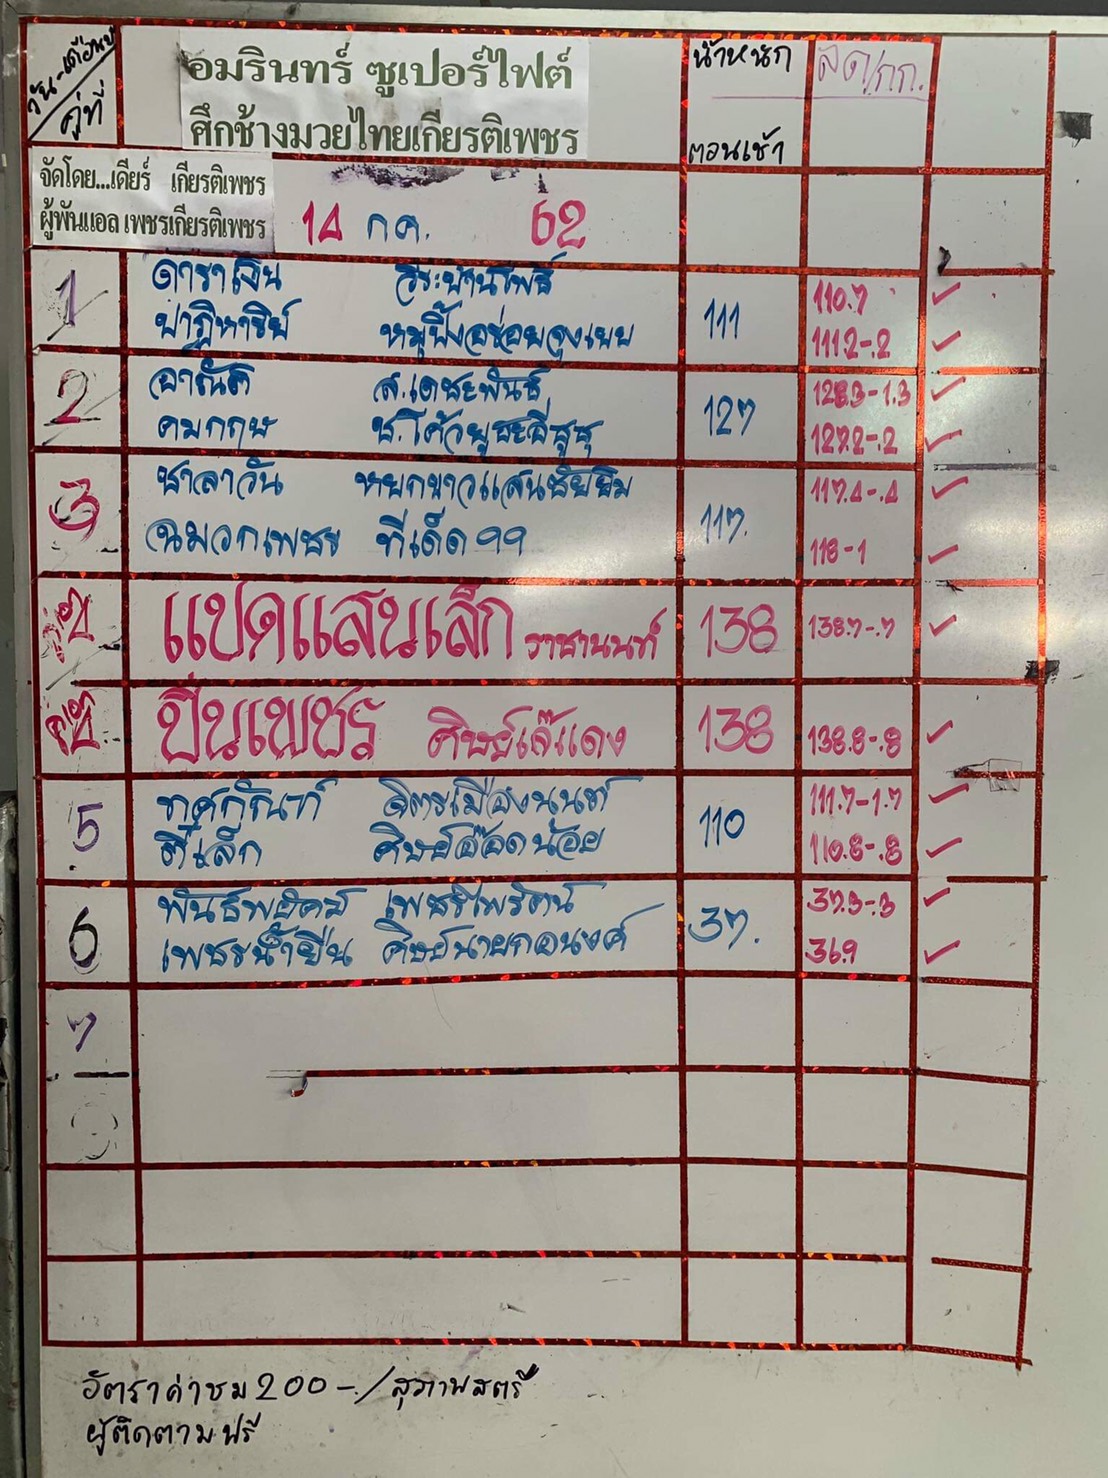 วัน-เดือนปี
คู่ที่
อมรินทร์ ซูเปอร์ไฟต์
ศึกช้างมวยไทยเกียรติเพชร
น้ำหนัก
ตอนเช้า
ลด/กก.
จัดโดย...เดียร์ เกียรติเพชร
ผู้พันแอล เพชรเกียรติเพชร
14 กค. 62
1 ดาราเงิน
ปาฏิหาริย์ หมูปิ้งอร่อยจุงเบย
111
110.7
111.2-.2
2 อาณัติ ส.เดชะพันธ์
คมกฤษ
127
128.3-1.3
127.2-.2
3 ชาลาวัน หยกขาวแสนชัยยิม
ฉมวกเพชร ทีเด็ด99
117.
117.4-.4
118-1
แปดแสนเล็ก ราชานนท์ 138 138.7-.7
ปืนเพชร ศิษย์เจ๊แดง 138 138.8-.8
5 ทศกัณฑ์ จิตรเมืองนนท์
ตี๋เล็ก ศิษย์อ๊อดน้อย
110
111.7-1.7
110.8-.8
6 พันธ์พยัคฆ์ เพชรไพรัตน์
เพชรน้ำยืน ศิษย์นายกอนงค์
37.
37.3-.3
36.9
7
อัตราค่าชม 200-/สุภาพสตรี
ผู้ติดตามฟรี